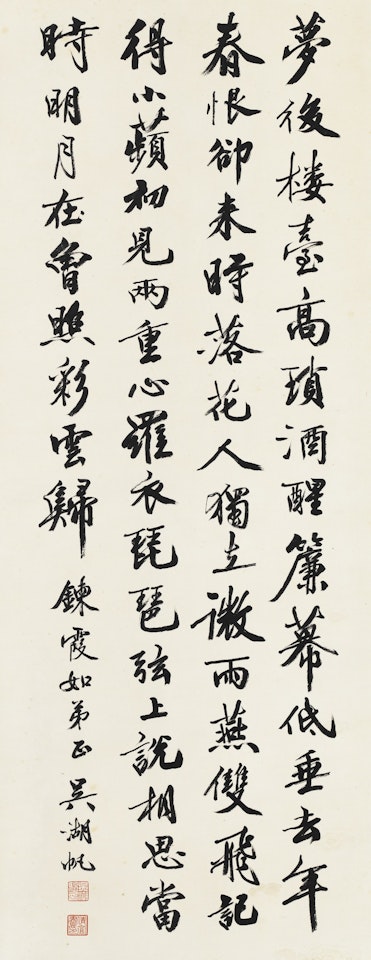 夢後樓臺高瑣酒醒簾幕低垂去年
春恨卻來時落花人獨立微雨燕雙飛記
得小蘋初見兩重心羅衣琵琶弦上說相思當
時明月在曾照彩雲歸
鍊霞如弟正 吳湖帆